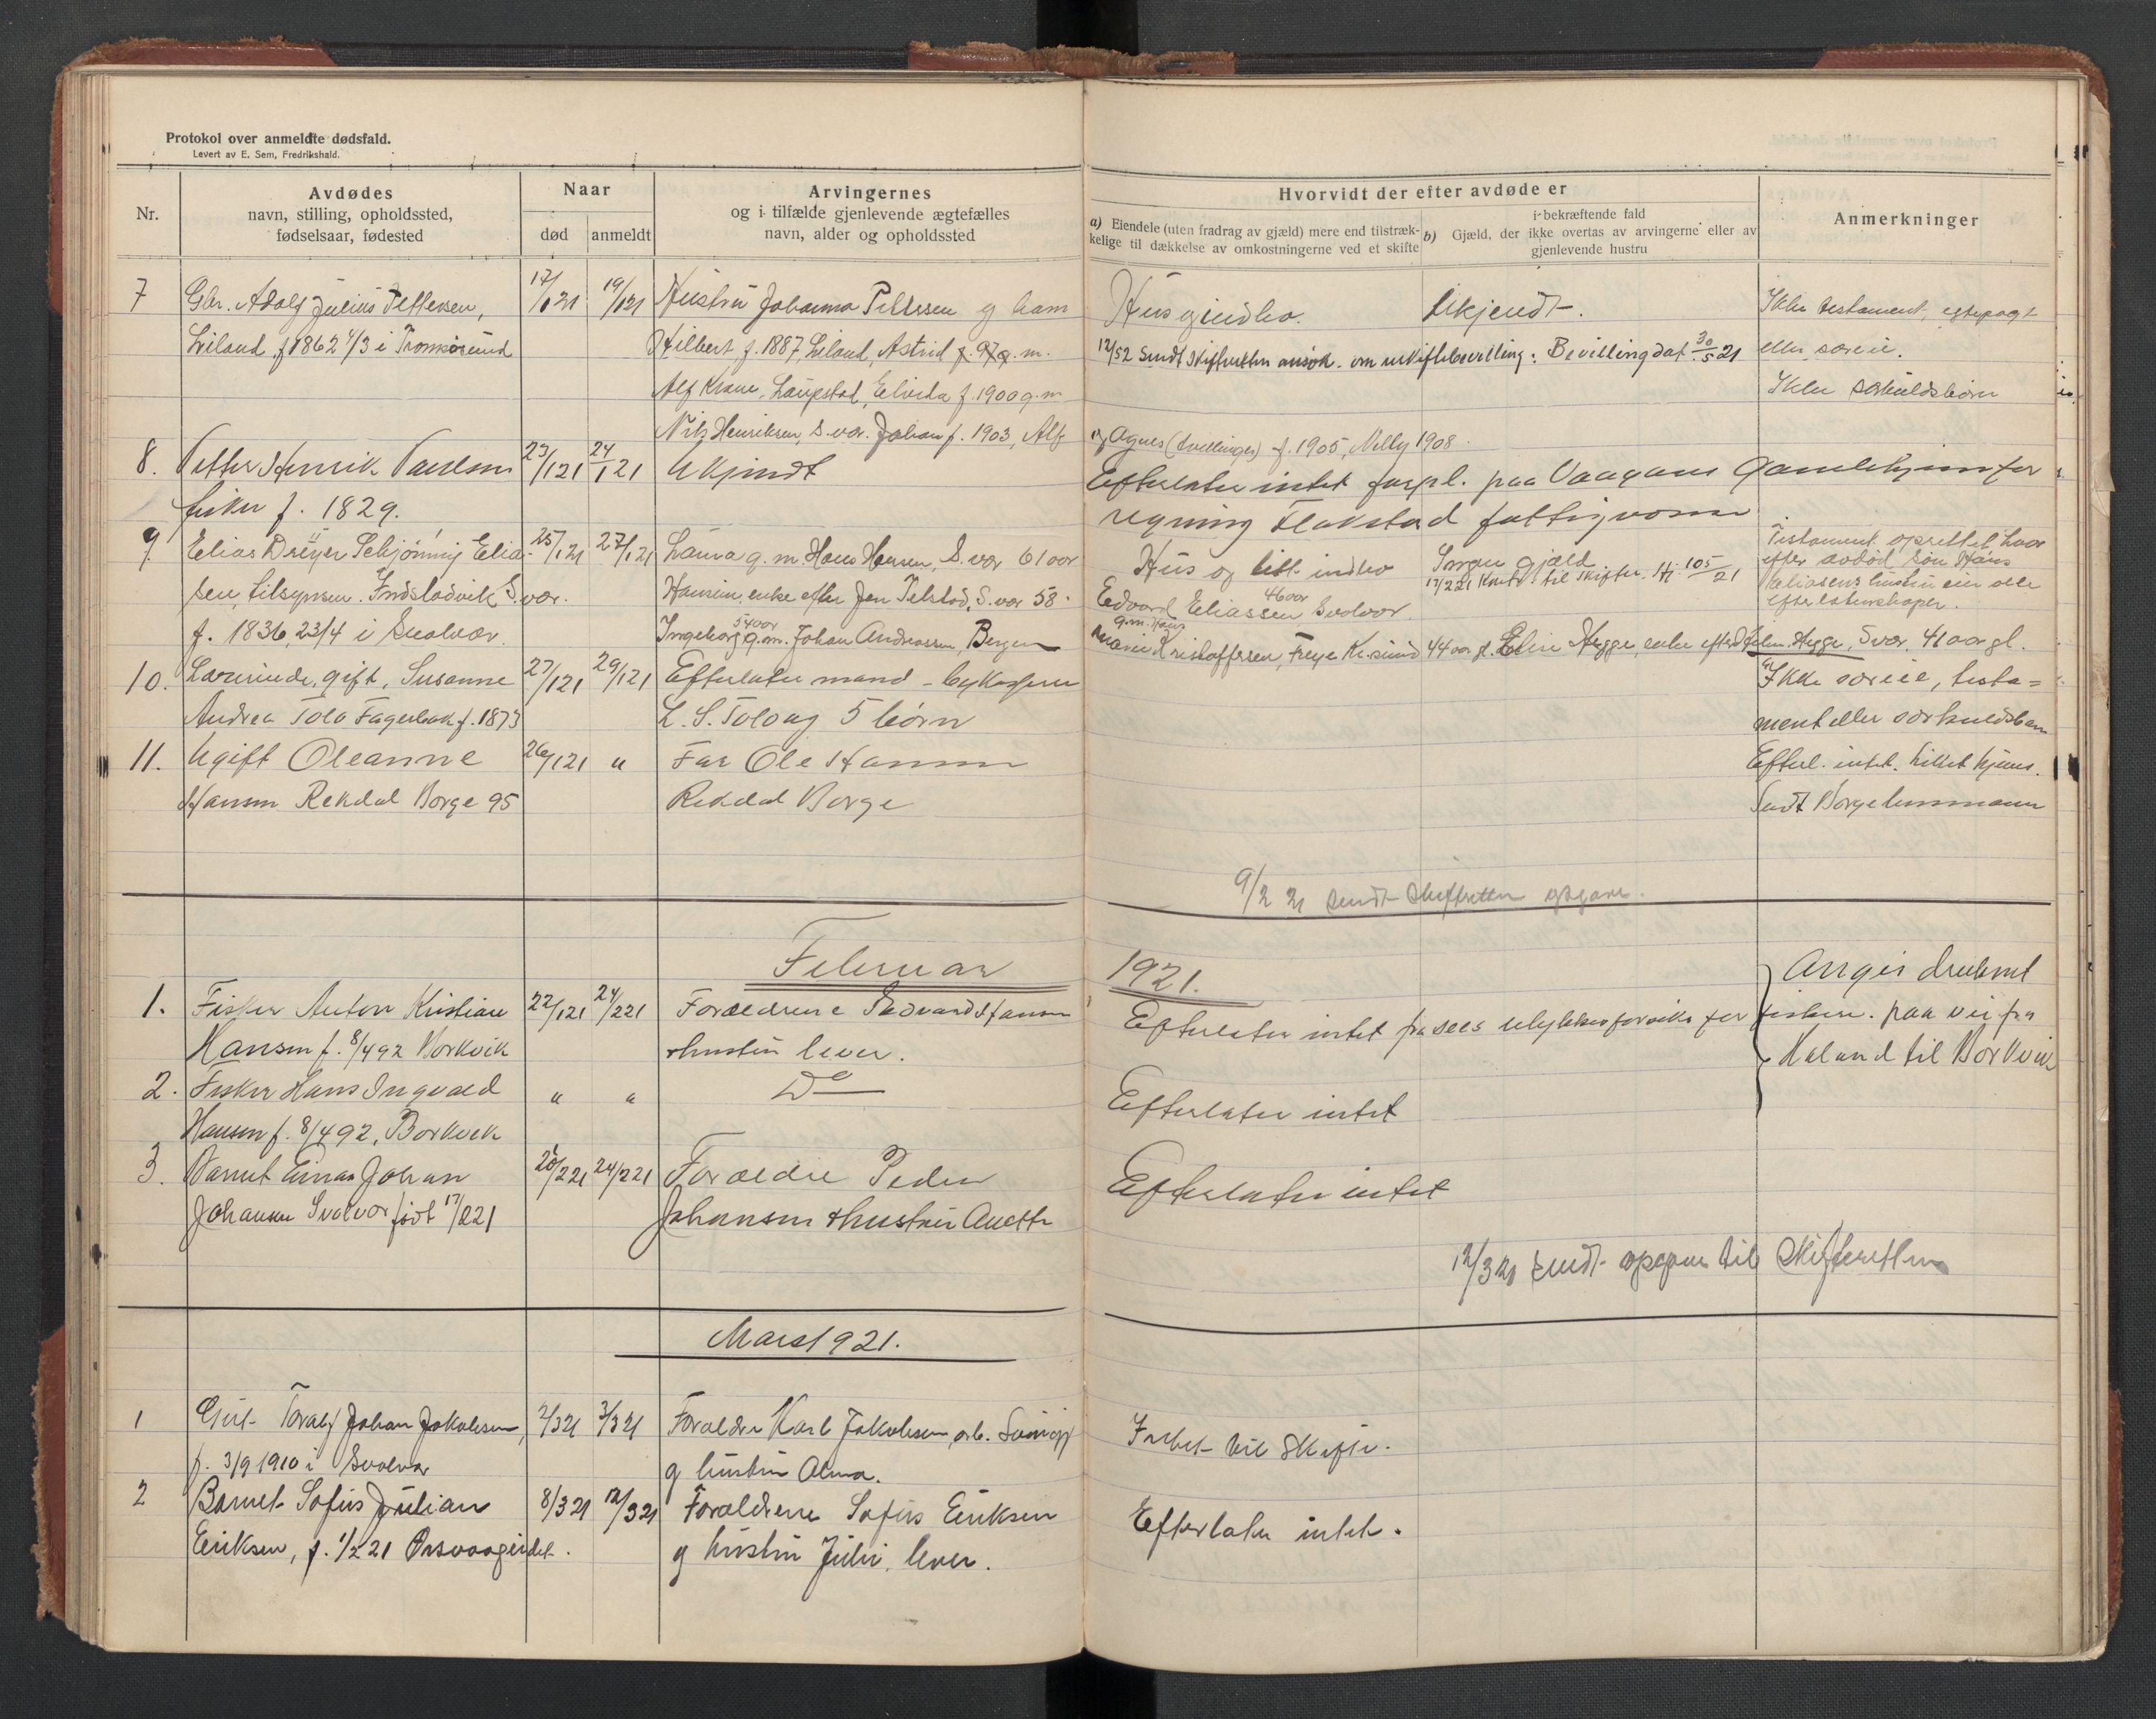 Protokol over anmeldte dødsfald.
Levert av E. Sem, Fredrikshald.
Nr.
Avdødes
navn, stilling, opholdssted,
fødselsaar, fødested
Naar
død
anmeldt
Arvingernes
og i tilfælde gjenlevende ægtefælles
navn, alder og opholdssted
Hvorvidt der efter avdøde er
a) Eiendele (uten fradrag av gjæld) mere end tilstræk-
kelige til dækkelse av omkostningerne ved et skifte
i bekræftende fald
b) Gjæld, der ikke overtas av arvingerne eller av
gjenlevende hustru
Anmerkninger
7 Gbr. Adolf Julius Pettersen, 17/1 21 19/1 21 Hustru Johanna Pettersen og barn
Liland, f 1862 4/3 i Tromsøsund Hilbert f. 1887, Liland, Astrid f. 97 g. m.
Alf Krane, Laupstad, Elvida f. 1900 g. m.
Nils Henriksen, S.vær. Johan f. 1903, Alf
Hus og indbo. Ukjendt. Ikke testament, egtepagt
12/5 2 Sendt skifteretten ansøk. om uskiftebevilling: Bevilling dat. 30/5 21 eller særeie.
Ikke særkuldsbörn
og Agnes (tvillinger) f. 1905, Nelly 1908.
8. Petter Henrik Paulsen 23/1 21 24/1 21 Ukjendt
fisker f. 1829.
Efterlater intet forpl. paa Vaagans Gamlehjem for
regning Flakstad fattigvæsen
9. Elias Dreyer Schjønning Elia- 25/1 21 27/1 21 Laura g. m. Hans Hansen, S.vær 61 aar
sen, tilsynsm. Indstadvik S.vær. Hansine, enke efter Jen Pelstad, S.vær 58.
f. 1836, 23/4 i Svolvær. Ingeborg 54 aar g. m. Johan Andreassen, Bergen
Hus og litt indbo Ingen gjæld
12/2 21 sendt til skifter. H. 105/21
Edvard Eliassen 46 aar Svolvær.
g.m. Hans
Marie Kristoffersen, Freye Kr.sund 44 aar gl. Elise Hegge, enke efter Hegge, Svær, 41 aar gl.
Testament oprettet hvor
efter avdød søn Hans
Eliasens hustru eier alle
efterlatenskaper.
10. Lærerinde, gift, Susanne 27/1 21 29/1 21 Efterlater mand - bykasserer
Andrea Tolo Fagerbak f. 1873 L. S. Tolo og 5 börn
Ikke særeie, testa=
ment eller særkuldsbarn
11. Ugift Oleanne 26/1 21 " Far Ole Hansen
Hansen Rekdal Borge 95 Rekdal Borge
Efterl. intet. hjems.
Sendt Borge lensmann
9/2 21 sendt skifteretten opgave.
Februar 1921.
1. Fisker Anton Kristian 22/1 21 24/2 21 Forældrene Edvard Hansen
Hansen f. 8/4 92 Borkvik & hustru lever.
Efterlater intet for fiskere. paa vei fra
Angis druknet
Haland til Borkvik
2. Fisker Hans Ingvald " " Do
Hansen f. 8/4 92, Borkvik
Efterlater intet
3. Barnet Einar Johan 20/2 21 24/2 21 Forældre Peder
Johansen Svolvær født 17/2 21 Johansen & hustru Anette
Efterlater intet
12/3 21 sendt opgave til Skifteretten
Mars 1921.
1 Gut Toralf Johan Jakobsen, 2/3 21 3/3 21 Forældre Karl Jakobsen, arb.
f. 3/9 1910 i Svolvær og hustru Alma.
Intet til skifte.
2 Barnet Sofus Julian 8/3 21 12/3 21 Forældrene Sofus Eriksen
Eriksen, f. 1/2 21 Ørsvaageidet. og hustru Julie, lever.
Efterlater intet.